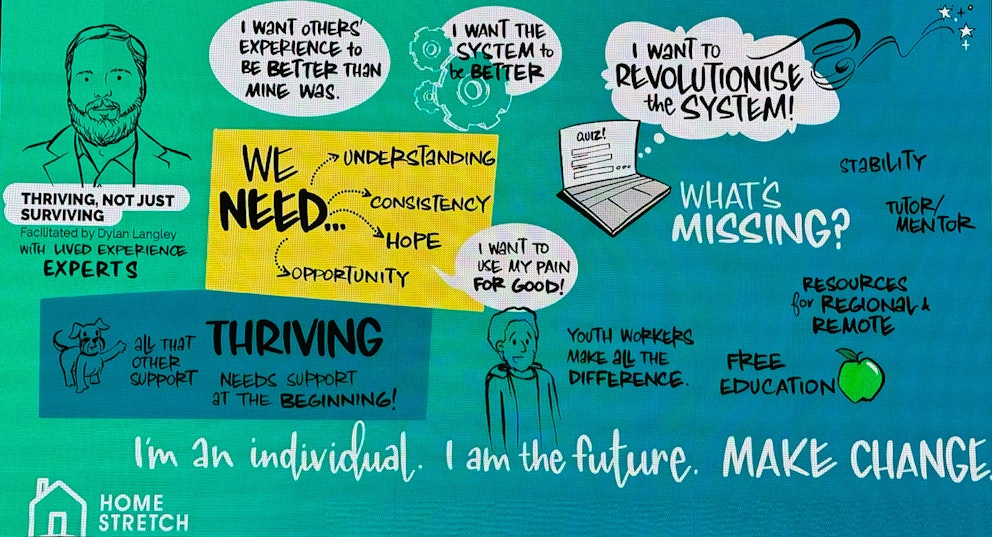 I WANT OTHERS'
EXPERIENCE to
BE BETTER THAN
MINE WAS.
I WANT THE
SYSTEM to
be BETTER
I WANT TO
REVOLUTIONISE
the SYSTEM!
THRIVING, NOT JUST
SURVIVING
Facilitated by Dylan Langley
WITH LIVED EXPERIENCE
EXPERTS
WE
NEED...
UNDERSTANDING
CONSISTENCY
HOPE
OPPORTUNITY
I WANT TO
USE MY PAIN
FOR GOOD!
QUIZ!
WHAT'S
MISSING?
STABILITY
TUTOR/
MENTOR
RESOURCES
for REGIONAL &
REMOTE
FREE
EDUCATION
YOUTH WORKERS
MAKE ALL THE
DIFFERENCE.
ALL THAT
OTHER
SUPPORT
THRIVING
NEEDS SUPPORT
AT THE BEGINNING!
I'm an individual. I am the future. MAKE CHANGE.
HOME
STRETCH